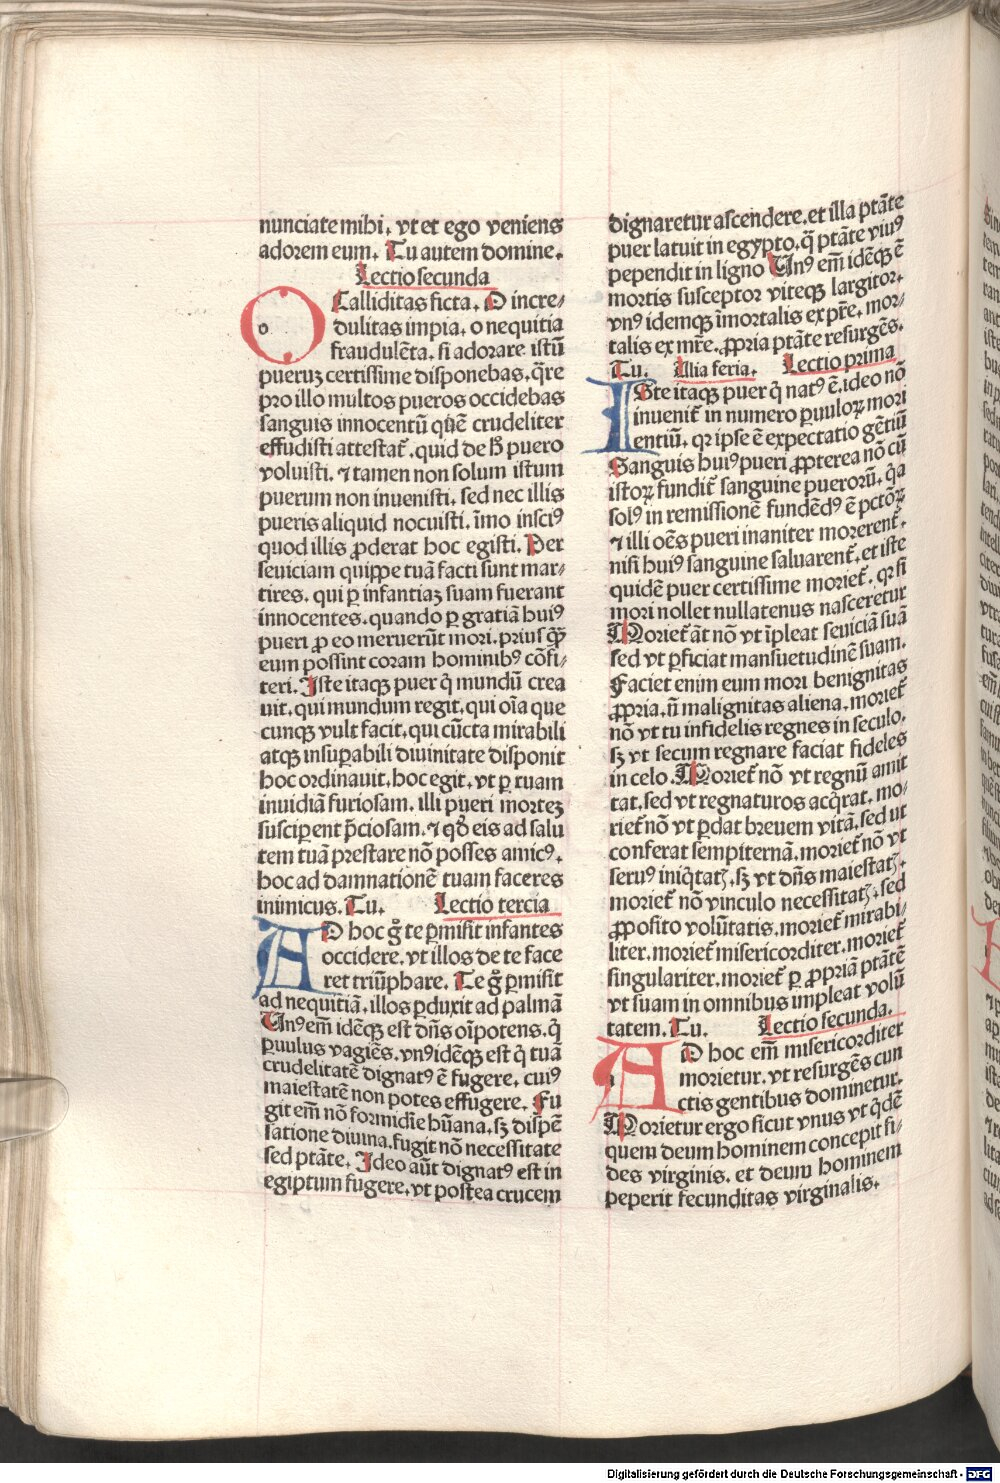 nunciate mihi, vt et ego veniens
adorem eum. Tu autem domine.
Lectio secunda
O Calliditas ficta. O incre/
dulitas impia, o nequitia
fraudulēta. si adorare istū
pueruꝫ certissime disponebas, q̄re
pro illo multos pueros occidebas
sanguis innocentū quē crudeliter
effudisti attestat᷑, quid de h̄ puero
voluisti. ⁊ tamen non solum istum
puerum non inuenisti, sed nec illis
pueris aliquid nocuisti. īmo insciꝰ
quod illis ꝓderat hoc egisti. Per
seuiciam quippe tuā facti sunt mar-
tires, qui ꝑ infantiaꝫ suam fuerant
innocentes, quando ꝑ gratiā huiꝰ
pueri ꝓ eo meruerūt mori. prius qꝫ̄
eum possint coram hominibꝰ cōfi/
teri. Iste itaqꝫ puer q̇ mundū crea
uit, qui mundum regit, qui oīa que
cunqꝫ vult facit, qui cūcta mirabili
atqꝫ insuꝑabili diuinitate disponit
hoc ordinauit, hoc egit, vt ꝑ tuam
inuidiā furiosam, illi pueri morteꝫ
susciperent p̄ciosam. ⁊ qd̄ eis ad salu
tem tuā prestare nō posses amicꝰ,
hoc ad damnationē tuam faceres
inimicus. Tu. Lectio tercia
AD hoc g̊ te ꝑmisit infantes
occidere, vt illos de te face
ret triūphare. Te g̊ ꝑmisit
ad nequitiā, illos ꝑduxit ad palmā
Unꝰ em̄ idēqꝫ est dn̄s oīpotens, q̇
ꝑuulus vagiēs, vnꝰ idēqꝫ est q̇ tuā
crudelitatē dignatꝰ ē fugere, cuiꝰ
maiestatē non potes effugere. Fu
git em̄ nō formidīe hūana, sꝫ dispē
satione diuina, fugit nō necessitate
sed ptāte. Ideo aūt dignatꝰ est in
egiptum fugere, vt postea crucem
dignaretur ascendere, et illa ptāte
puer latuit in egypto, q̄ ptāte viuꝰ
pependit in ligno Unꝰ em̄ idēqꝫ ē
mortis susceptor viteqꝫ largitor,
vnꝰ idemqꝫ īmortalis ex pr̄e, mor/
talis ex mr̄e, ꝓpria ptāte resurgēs.
Tu. Alia feria. Lectio prima
ISte itaqꝫ puer q̇ natꝰ ē, ideo nō
inuenit᷑ in numero ꝑuuloꝝ mori
entiū, qꝛ ipse ē expectatio gētiū
Sanguis huiꝰ pueri ꝓpterea nō cū
istoꝝ fundit᷑ sanguine pueroꝝ, q̇a
solꝰ in remissionē fundēdꝰ ē pctōꝝ
⁊ illi oēs pueri inaniter morerent᷑,
nisi huiꝰ sanguine saluarent᷑, et iste
quidē puer certissime moriet᷑, qꝛ si
mori nollet nullatenus nasceretur
Moriet᷑ āt nō vt īpleat seuiciā suā
sed vt ꝑficiat mansuetudinē suam.
Faciet enim eum mori benignitas
ꝓpria, ñ malignitas aliena, moriet᷑
nō vt tu infidelis regnes in seculo,
sꝫ vt secum regnare faciat fideles
in celo. Moriet᷑ nō vt regnū amit
tat, sed vt regnaturos acq̇rat, mo/
riet᷑ nō vt ꝑdat breuem vitā, sed ut
conferat sempiternā, moriet᷑ nō vt
seruꝰ iniq̇tatꝫ, sꝫ vt dn̄s maiestatꝫ,
moriet᷑ nō vinculo necessitatꝫ, sed
ꝓposito volūtatis, moriet᷑ mirabi/
liter, moriet᷑ misericorditer, moriet᷑
singulariter, moriet᷑ ꝑ ꝓpriā ptātē
vt suam in omnibus impleat volū
tatem. Tu. Lectio secunda.
AD hoc em̄ misericorditer
morietur, vt resurgēs cun
ctis gentibus dominetur.
Morietur ergo sicut vnus vt q̇dē
quem deum hominem concepit fi/
des virginis, et deum hominem
peperit fecunditas virginalis.
Digitalisierung gefördert durch die Deutsche Forschungsgemeinschaft - DFG